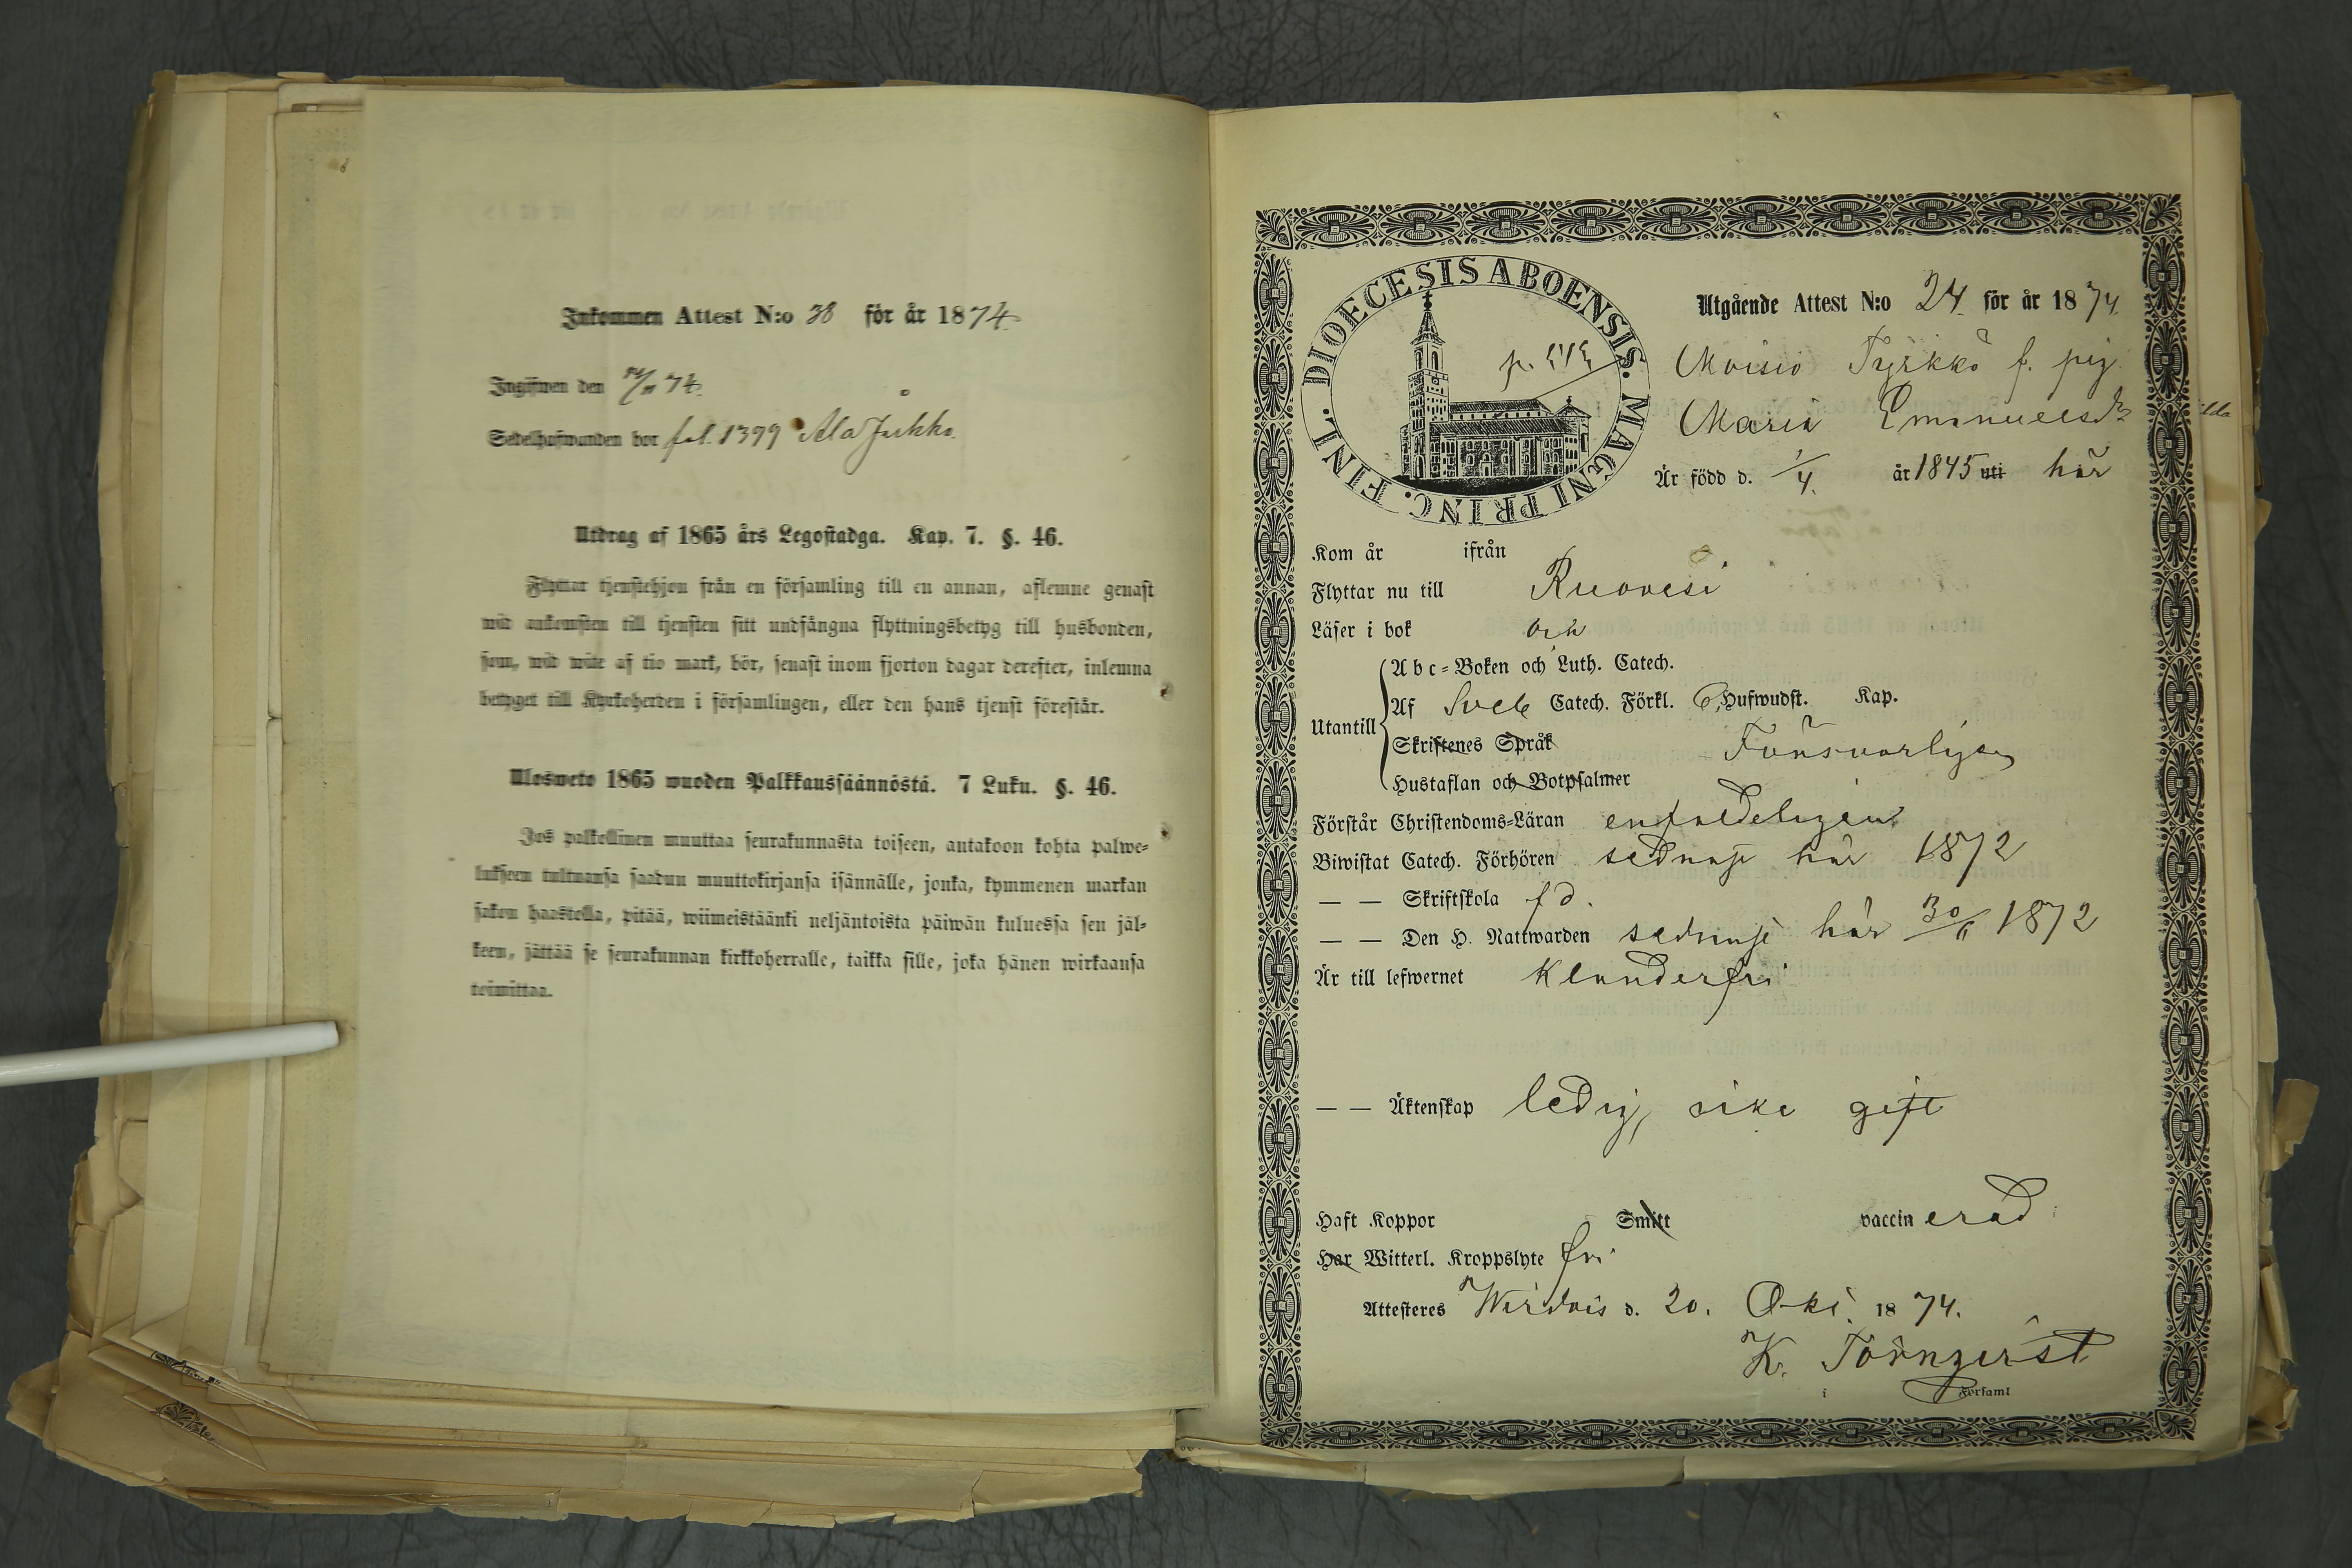 Inkommen Attest N:o 38 för år 1874.
Ingifwen den 74.
Sedelhafwanden bor fol. 1399 Ala Jäkkö.
Utdrag af 1865 års Legostadga. Kap. 7. §. 46.
Flyttar tjenstehjon från en församling till en annan, aflemne genast
wid ankomsten till tjensten sitt undfångna flyttningsbetyg till husbonden,
som, wid wite af tio mark, bör, senast inom fjorton dagar derefter, inlemna
betyget till Kyrkoherden i församlingen, eller den hans tjenst förestår.
Ulosweto 1865 wuoden Palkkaussäännöstä. 7 Luku. §. 46.
Jos palkollinen muuttaa seurakunnasta toiseen, antakoon kohta palwe-
lukseen tultuansa saadun muuttokirjansa isännälle, jonka, kymmenen markan
sakon haastolla, pitää, wiimeistäänki neljäntoista päiwän kuluessa sen jäl-
keen, jättää se seurakunnan kirkkoherralle, taikka sille, joka hänen wirkaansa
toimittaa.
DIOECESIS ABOENSIS. MAGNI PRINC. FINL.
Utgående Attest N:o 24. för år 1874.
Moisio Tyrkkö f. pig.
Maria Emanuelsdr
Är född d. 1/4. år 1845 uti här
Kom år ifrån
Flyttar nu till Ruovesi
Läser i bok och
Utantill
Abc-Boken och Luth. Catech.
Af Sveb Catech. Förkl. 6 Hufwudst. Kap.
Skriftenes Språk Försvarligen
Hustaflan och Botpsalmer
Förstår Christendoms-Läran enfaldeligen
Biwistat Catech. Förhören sednast här 1872
— — Skriftskola f d.
— — Den H. Nattwarden sednast här 30/6 1872
Är till lefwernet klanderfri
— — Äktenskap ledig, icke gift
Haft Koppor Smitt vaccinerad
Har Witterl. Kroppslyte fri
Attesteres Wirdois d. 20. Okt. 1874.
K. Törnqvist
i Församl